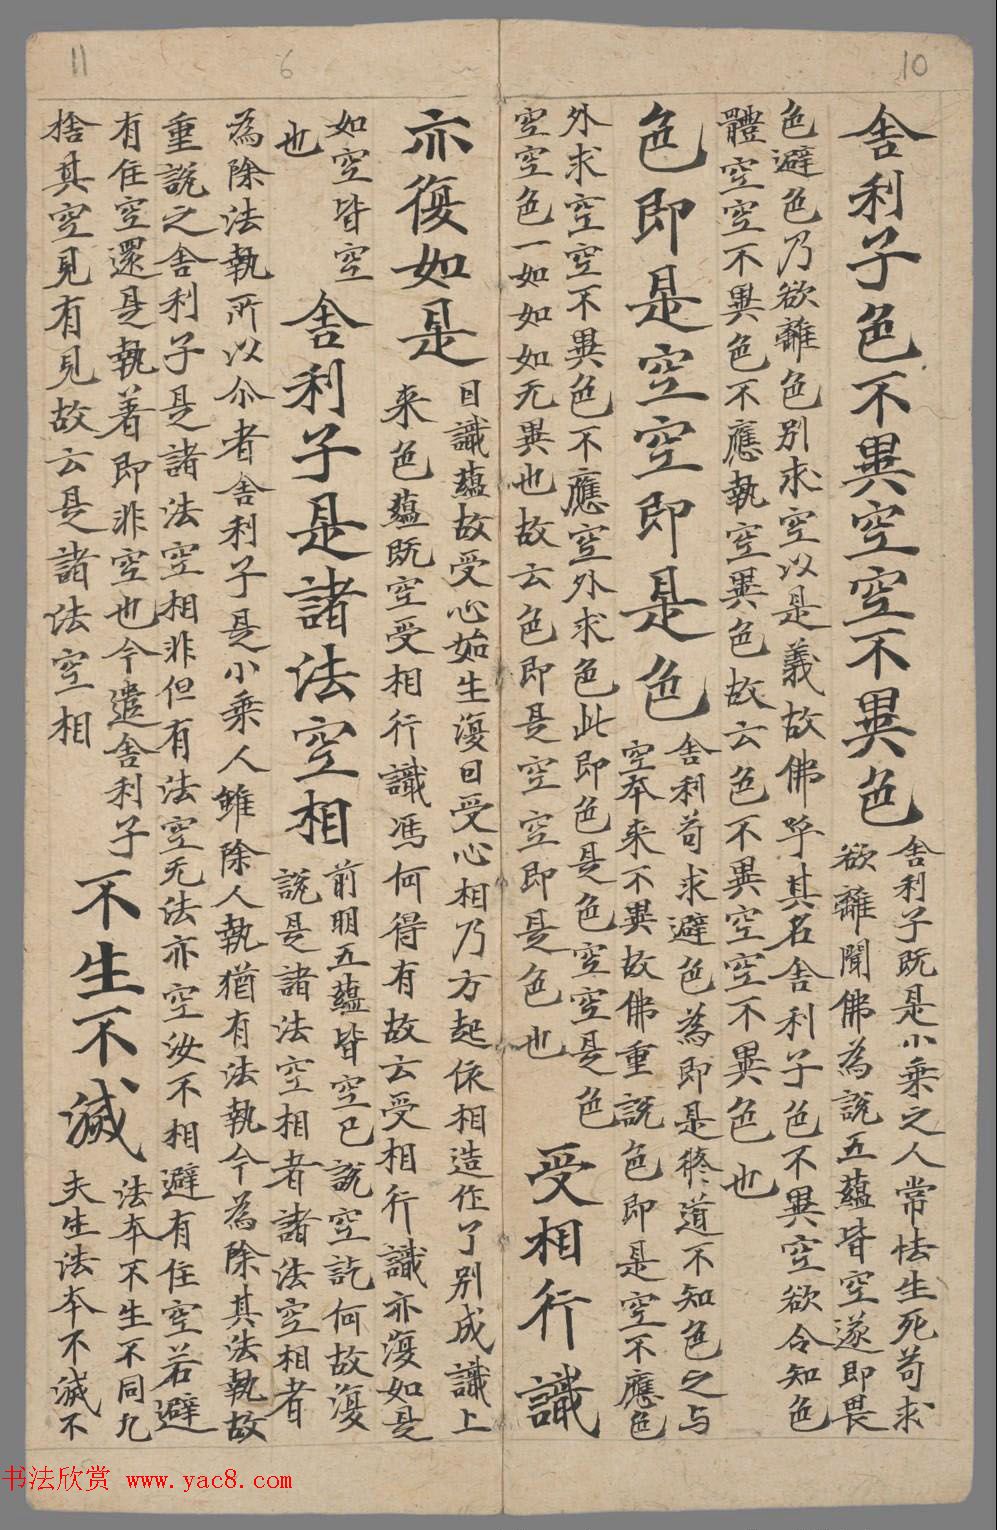 10
11
6
舍利子色不異空空不異色
舍利子既是小乘之人常怯生死苟求
欲離聞佛為說五蘊皆空遂即畏
色避色乃欲離色別求空以是義故佛呼其名舍利子色不異空欲令知色
體空空不異色不應執空異色故云色不異空空不異色也
色即是空空即是色
舍利苟求避色為即是終道不知色之与
空夲来不異故佛重說色即是空不應色
外求空空不異色不應空外求色此即色是色空空是色
空空色一如如如无異也故云色即是空空即是色也
受相行識
亦復如是
日識蘊故受心始生復日受心相乃方起依相造作了別成識上
来色蘊既空受相行識馮何得有故云受相行識亦復如是
如空皆空
也
舍利子是諸法空相
前明五蘊皆空已說空訖何故復
說是諸法空相者諸法空相者
為除法執所以尒者舍利子是小乘人雖除人執猶有法執今為除其法執故
重說之舍利子是諸法空相非但有法空无法亦空汝不相避有住空若避
有住空還是執著即非空也今遣舍利子
捨其空見有見故云是諸法空相
不生不滅
法夲不生不同九
夫生法夲不滅不
书法欣赏 www.yac8.com